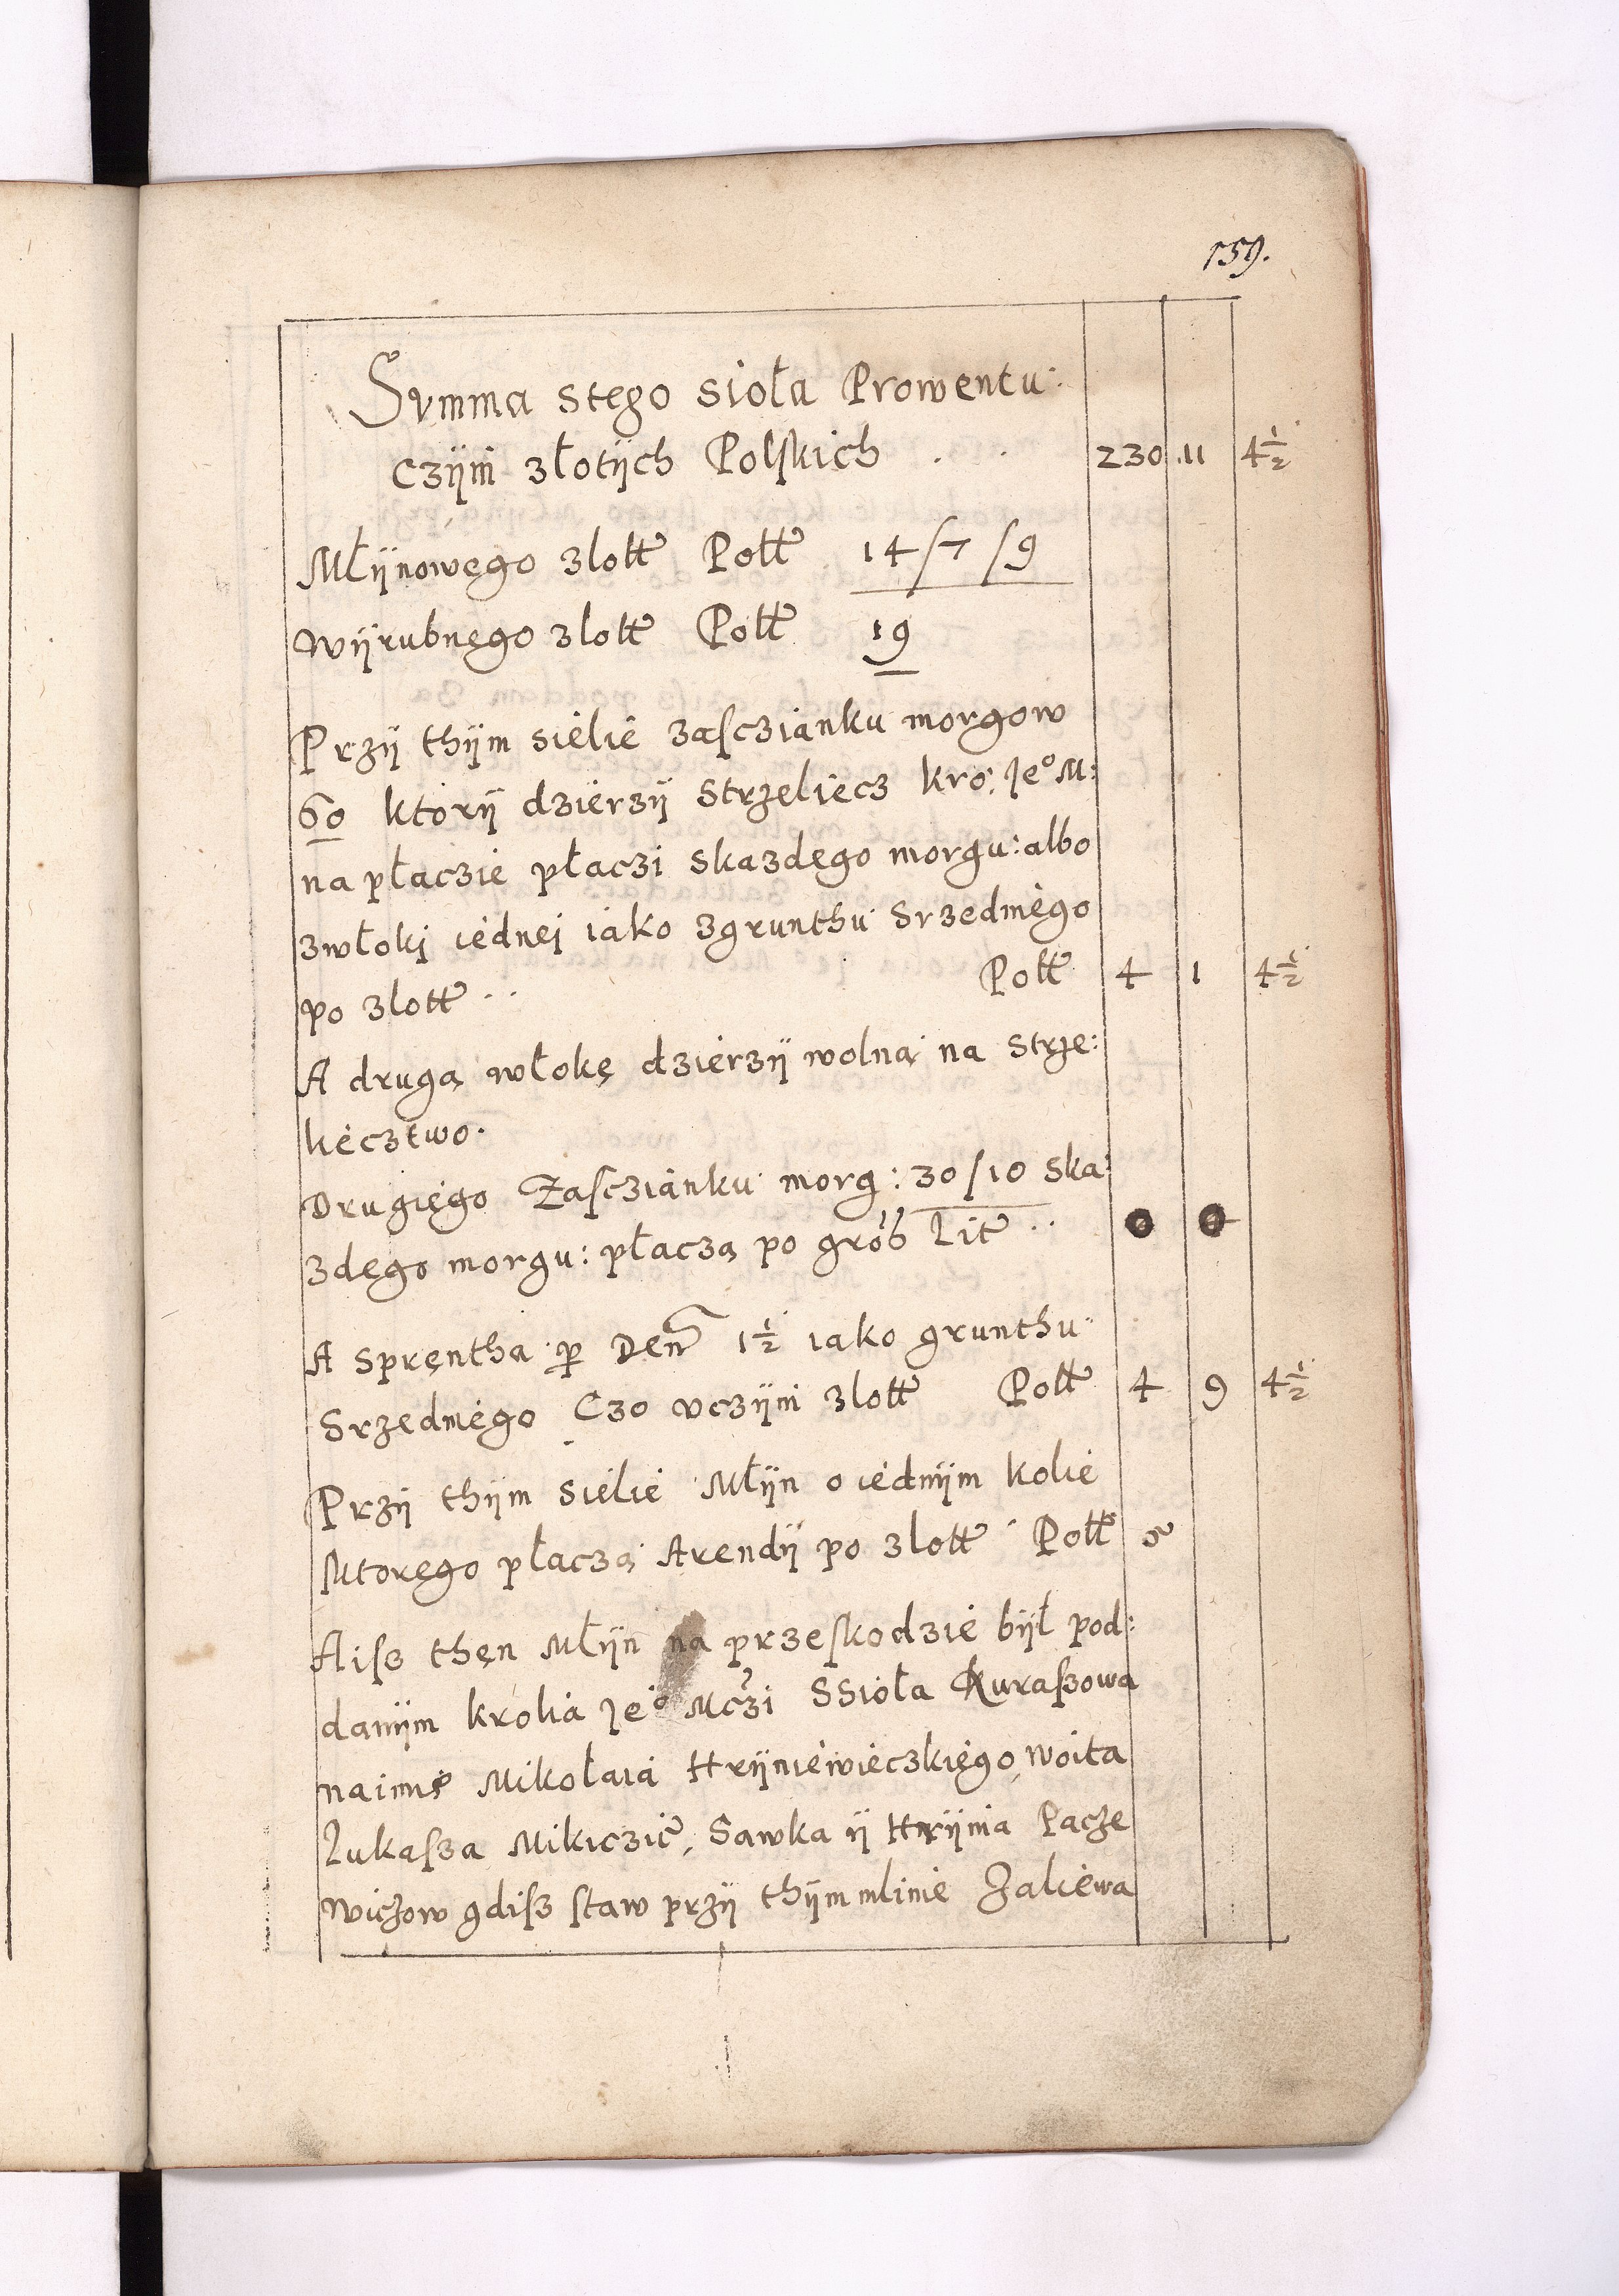 159.
Summa stego sioła Prowentu
Czÿni złotÿch Polskich . . 230 11 4½
Młÿnowego złott Poltt 14/7/9
Wÿrubnego złott Poltt 19
Przÿ thÿm sielie zasczianku morgow
60 ktorÿ dzierzÿ Strzeliecz kro: Je° M:
na płaczie płaczi skazdego morgu: albo
zwłoki iednei iako zgrunthu Srzedniego
po złott .. Poltt 4 1 4½
A drugą włokę dzierzÿ wolną na Strze:
liecztwo.
Drugiego Zasczianku morg: 30/10 ska
zdego morgu: płaczą po gro 6 Lit .. 0 0
A sprętha per Den 1½ iako grunthu
Srzedniego Czo vczÿni złott Poltt 4 9 4½
Przÿ thÿm sielie Młÿn o iednÿm kolie
Ktorego płaczą Arendÿ po złott Poltt 5
A isz then Młÿn na przeskodzie bÿł pod:
danÿm krolia Je° Mczi Ssioła Kuraszowa
naimię Mikołaia Hrÿniewieczkiego, woita
Łukasza Mikiczic, Sawka ÿ Hrÿnia Pacze
wiczow gdisz staw przÿ thÿm mlinie Zaliewa